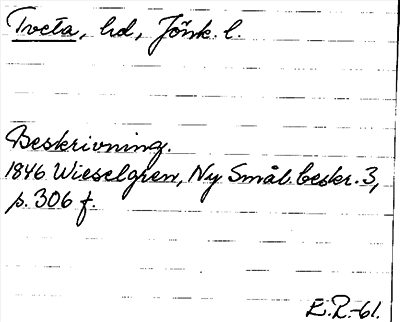 Tveta, hd, Jönk. l.
Beskrivning.
1846 Wieselgren, Ny Smål. beskr. 3,
p. 306 f.
L.R.-61.